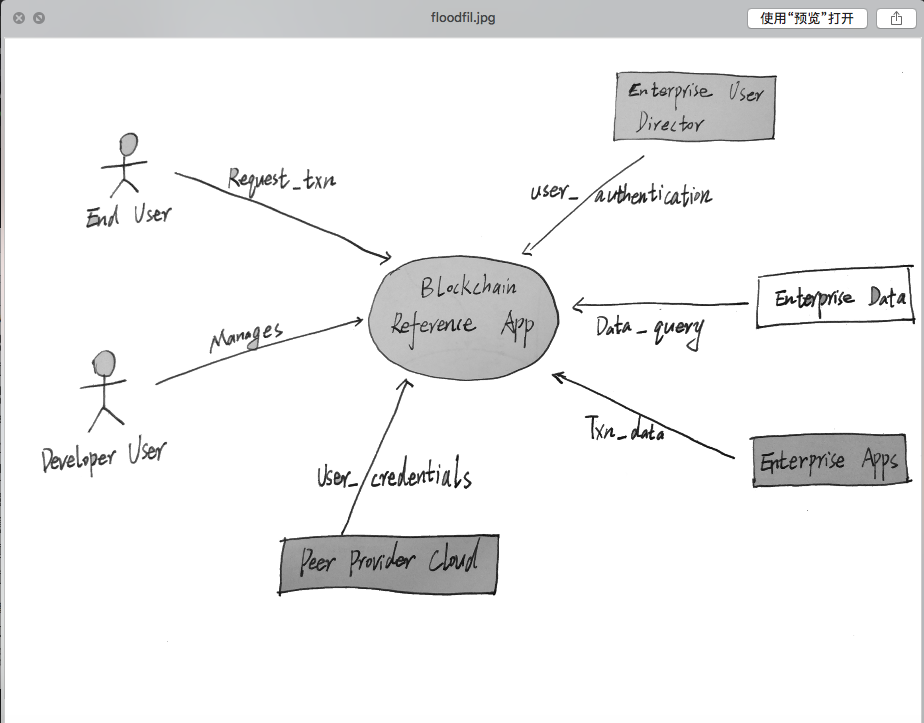 floodfil.jpg
使用“预览”打开
Enterprise User
Director
Request_txn
End User
user_authentication
Blockchain
Reference App
Enterprise Data
Data_query
Manages
Developer User
Txn_data
Enterprise Apps
User_credentials
Peer Provider Cloud